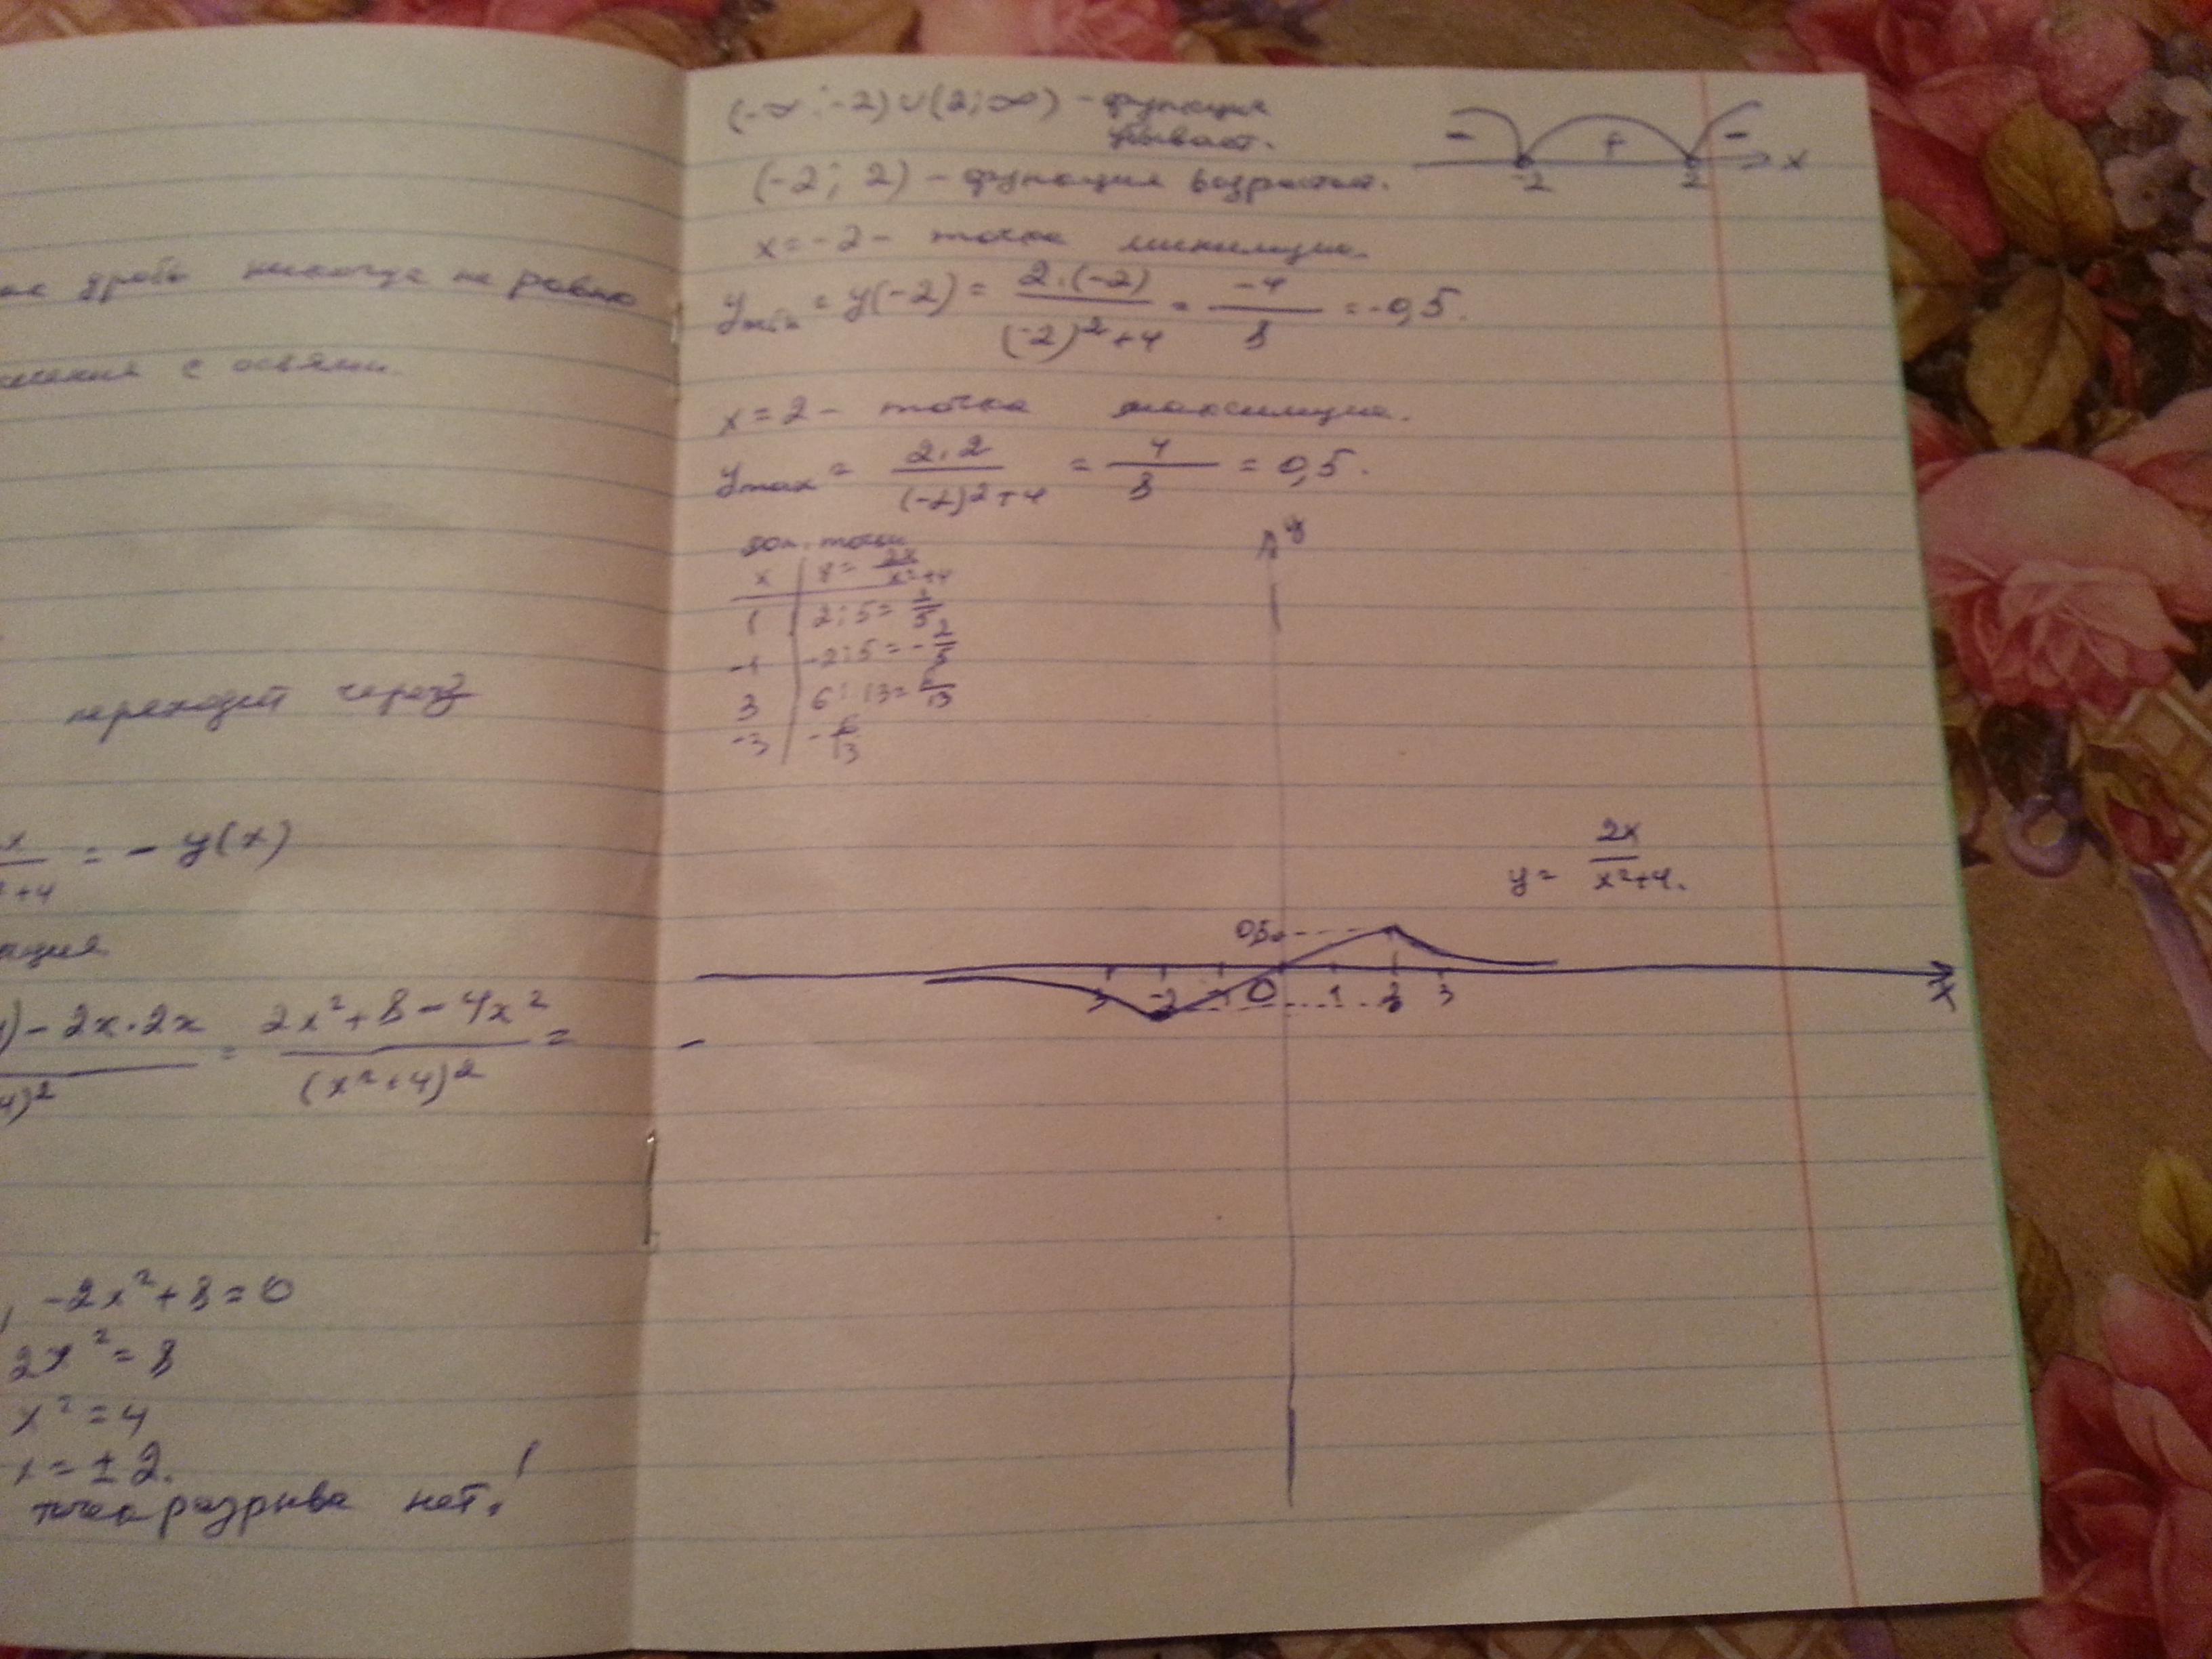 дробь никогда не равно
с осями.
переходит через
x
/ +4 = - y(x)
) - 2x·2x / 4)² = 2x² + 8 - 4x² / (x²+4)² =
, -2x² + 8 = 0
2x² = 8
x² = 4
x = ± 2.
точка разрыва нет.
(-∞; -2) ∪ (2; ∞) - функция
убывает.
- + -
-2 2 x
(-2; 2) - функция возрастает.
x = -2 - точка минимума.
y min = y(-2) = 2·(-2) / (-2)²+4 = -4 / 8 = -0,5.
x = 2 - точка максимума.
y max = 2·2 / (-2)²+4 = 4 / 8 = 0,5.
доп. точки
x = 2x / x²+4
1 2:5 =
-1 -2:5 = -2/5
3 6:13 = 6/13
-3 -6/13
y
y = 2x / x²+4.
0,5
-2 -1 0 1 2 3
x